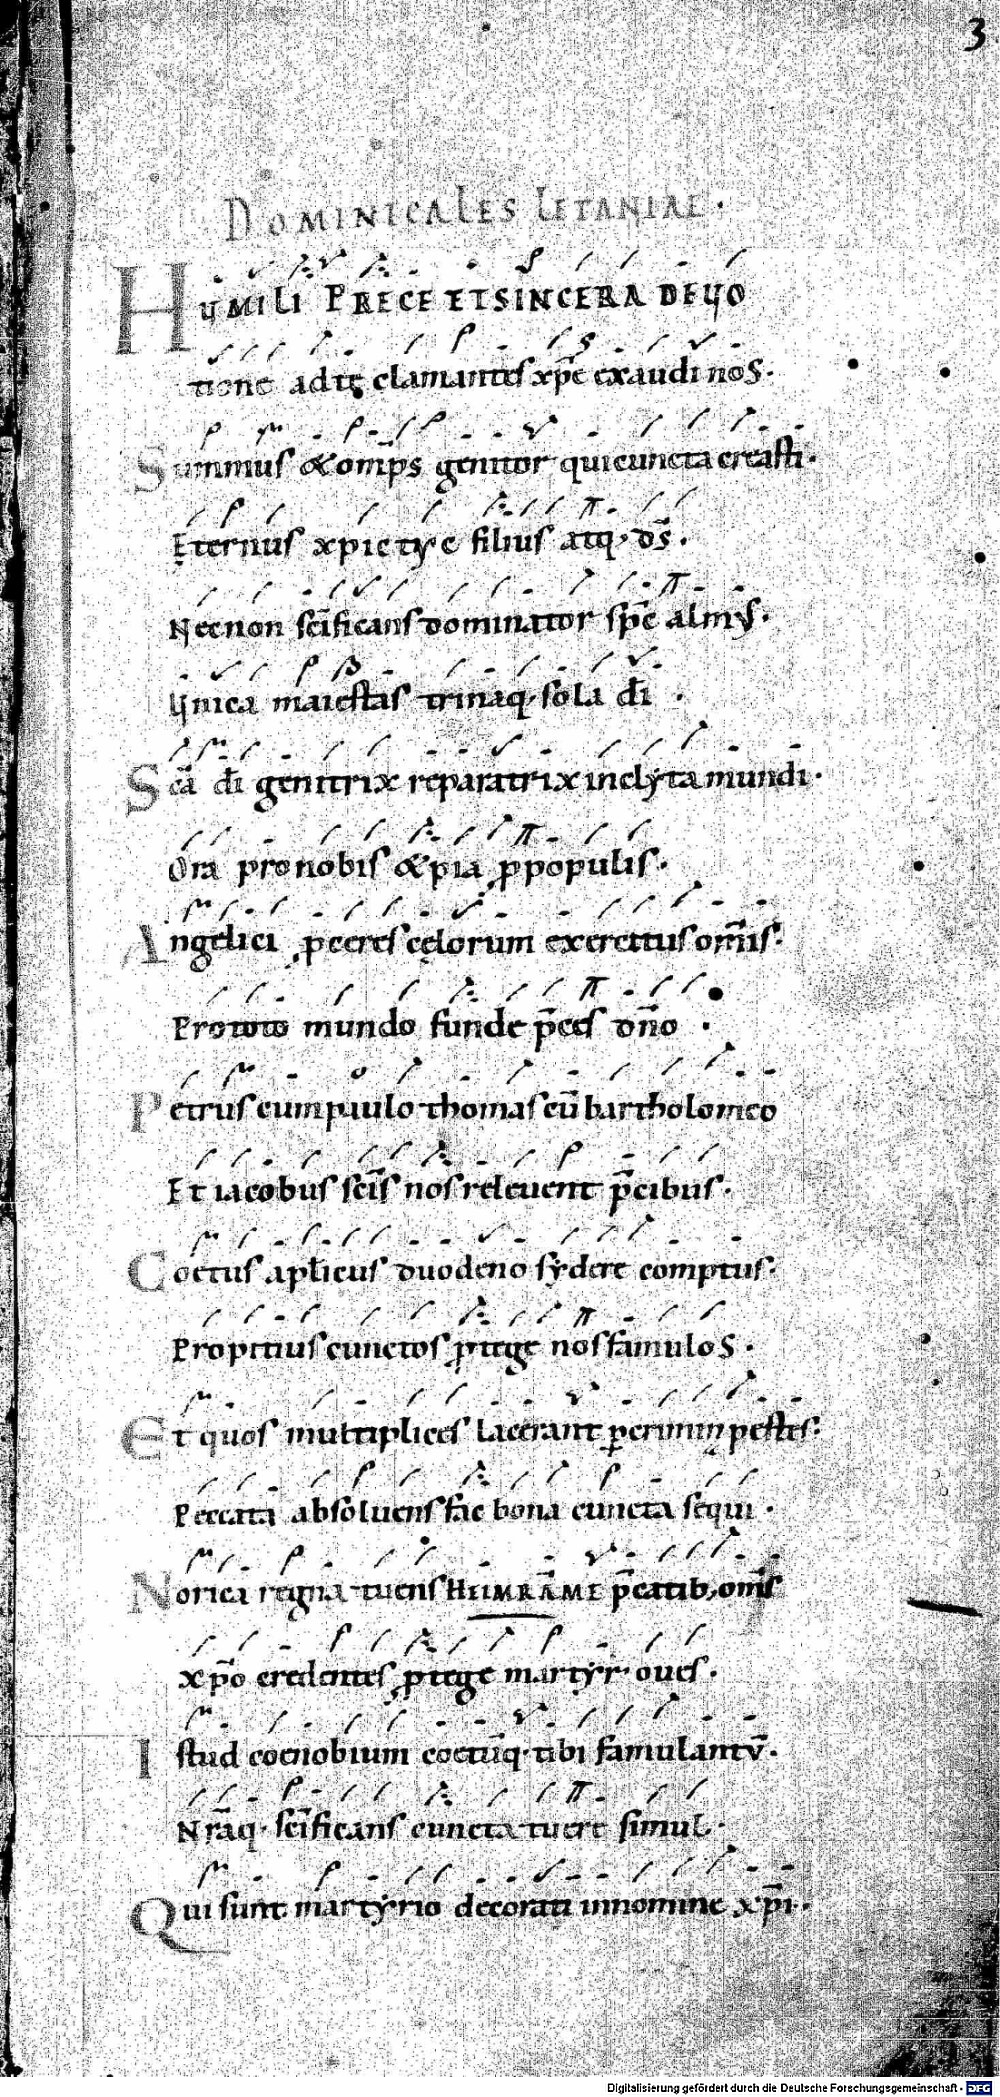 3
DOMINICALES LETANIAE.
HUMILI PRECE ET SINCERA DEUO
tione ad te clamantes xp̄e exaudi nos.
Summus & om̄ps genitor qui cuncta creasti.
Eternus xpicty̨e filius atq; ds̄.
Necnon sc̄ificans dominator sp̄c almus.
Unica maiestas trinaq; sola dī.
Scā dī genitrix reparatrix inclyta mundi.
Ora pro nobis & pia p̱ populis.
Angelici p̱ceres cęlorum exercitus om̄is.
Pro toto mundo funde p̄ces dn̄o.
Petrus cum paulo thomas cū bartholomeo
Et iacobus scīs nos releuent p̄cibus.
Coetus apl̄icus duodeno sydere comptus.
Propitius cunctos p̱tege nos famulos.
Et quos multiplices lacerant p̱ crimina pestes.
Peccata absoluens fac bona cuncta sequi.
Norica regna tuens HEIMRĀME p̄catib; om̄s
xp̄o credentes p̱tege martyr oues.
Istud coenobium coetūq; tibi famulantū.
Nr̄aq; sc̄ificans cuncta tuere simul.
Qui sunt martyrio decorati in nomine xp̄i.
Digitalisierung gefördert durch die Deutsche Forschungsgemeinschaft - DFG